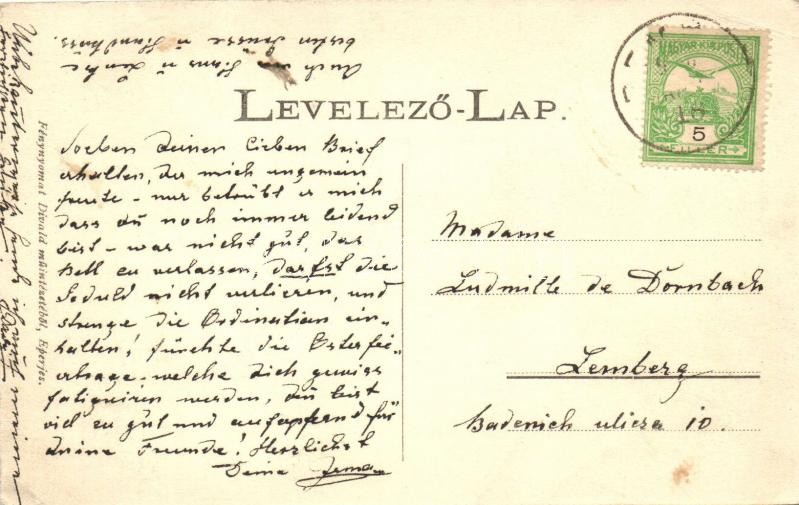 LEVELEZŐ-LAP.
MAGYAR KIR. POSTA
16
5
FILLER
Soeben deinen lieben Brief
erhalten, der mich ungemein
freute - nur betrübt es mich
dass du noch immer leidend
bist - war nicht gut, das
Bett zu verlassen, darfst die
Geduld nicht verlieren, und
strenge die Ordination ein-
halten! fürchte die Osterfei-
ertage, welche dich gewiss
fatiguiren werden, du bist
viel zu gut und aufopfernd für
deine Freunde! Herzlichst
Deine Irma
Madame
Ludmille de Dornbach
Lemberg
Badenich ulicza 10.
Auch von Hans u
besten Grüsse u Handküss.
Fénynyomat Divald műintézetéből, Eperjes.